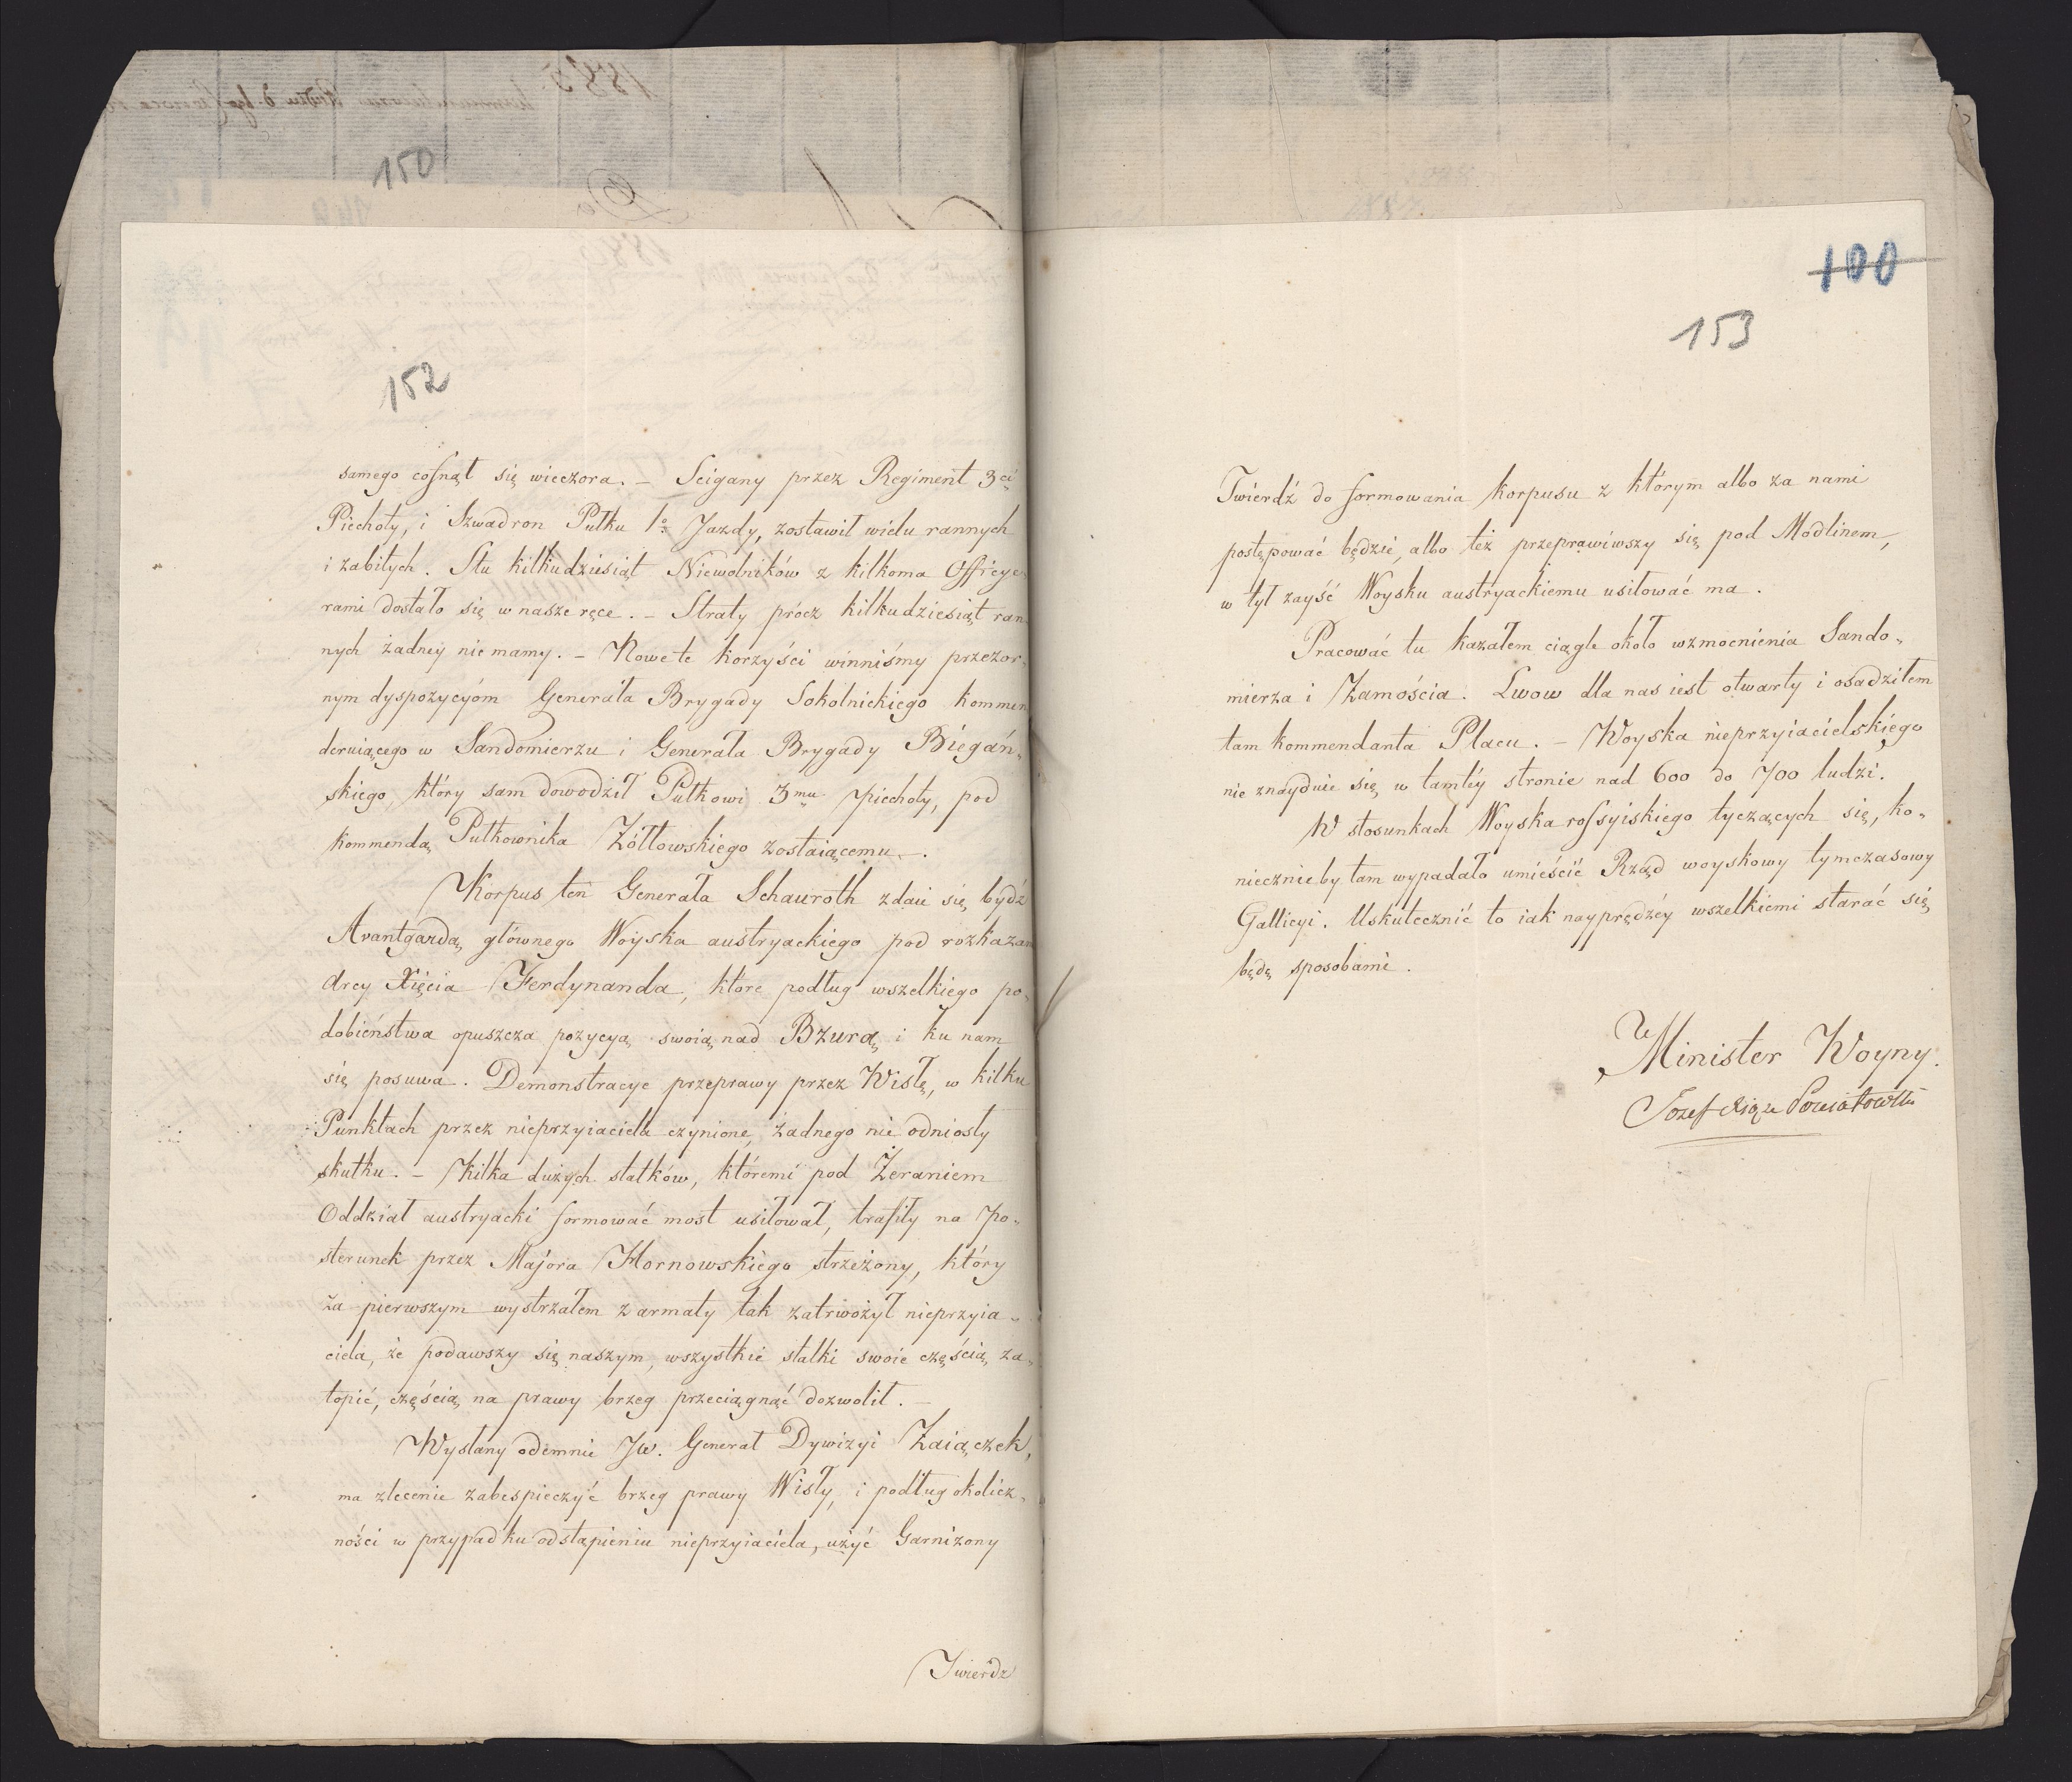 150
152
samego cofnął się wieczora. – Scigany przez Regiment 3ci
Piechoty, i Szwadron Pułku 1o Jazdy, zostawił wielu rannych
i zabitych. Stu kilkudziesiąt Niewolników z kilkoma Officye-
rami dostało się w nasze ręce. – Straty prócz kilkudziesiąt ran-
nych żadney nie mamy. – Nowe te korzyści winniśmy przezor-
nym dyspozycyóm Generała Brygady Sokolnickiego kommen
deruiącego w Sandomierzu i Generała Brygady Biegań-
skiego, który sam dowodził Pułkowi 3mu Piechoty, pod
kommendą Pułkownika Żółtowskiego zostaiącemu. –
Korpus ten Generała Schauroth zdaie się bydź
Avantgardą głównego Woyska austryackiego pod rozkazam
Arcy Xięcia Ferdynanda, które podług wszelkiego po-
dobieństwa opuszcza pozycyą swoią nad Bzurą i ku nam
się posuwa. Demonstracye przeprawy przez Wisłę, w kilku
Punktach przez nieprzyiaciela czynione, żadnego nie odniosły
skutku. – Kilka dużych statków, któremi pod Żeraniem
Oddział austryacki formować most usiłował, trafiły na Po-
sterunek przez Majora Hornowskiego strzeżony, który
za pierwszym wystrzałem z armaty tak zatrwożył nieprzyia-
ciela, że podawszy się naszym, wszystkie statki swoie częścią za-
topić, częścią na prawy brzeg przeciągnąć dozwolił. –
Wysłany odemnie JW. Generał Dywizyi Zaiączek,
ma zlecenie zabespieczyć brzeg prawy Wisły, i podług okolicz-
ności w przypadku odstąpieniu nieprzyiaciela, użyć Garnizony
Twierdz
100
153
Twierdź do formowania Korpusu z którym albo za nami
postępować będzie, albo też przeprawiwszy się pod Modlinem,
w tył zayść Woysku austryackiemu usiłować ma.
Pracować tu kazałem ciągle około wzmocnienia Sando-
mierza i Zamościa. Lwow dla nas iest otwarty i osadziłem
tam kommendanta Placu. – Woyska nieprzyiacielskiego
nie znayduie się w tamtéy stronie nad 600 do 700 ludzi.
W stosunkach Woyska rossyiskiego tyczących się, ko-
niecznie by tam wypadało umieścić Rząd woyskowy tymczasowy
Gallicyi. Uskutecznić to iak nayprędzéy wszelkiemi starać się
będę sposobami.
Minister Woyny.
Jozef Xiąże Poniatowski